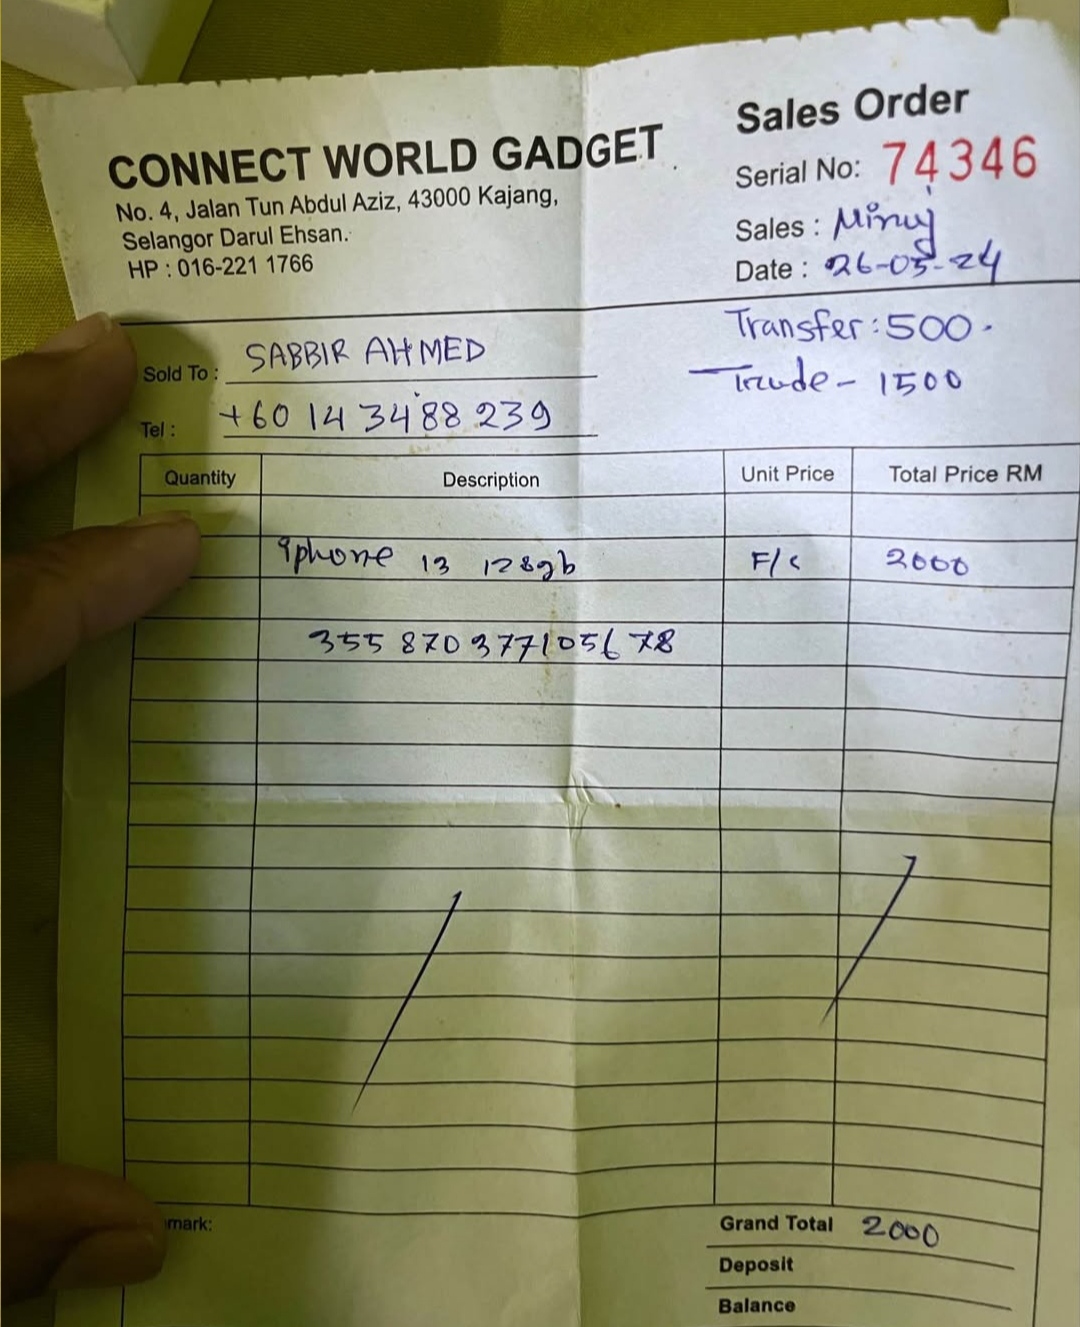 CONNECT WORLD GADGET
No. 4, Jalan Tun Abdul Aziz, 43000 Kajang,
Selangor Darul Ehsan.
HP : 016-221 1766
Sales Order
Serial No: 74346
Sales : Minuj
Date : 26-05-24
Transfer : 500.
Trade - 1500
Sold To : SABBIR AHMED
Tel : +60 14 3488 239
Quantity Description Unit Price Total Price RM
iphone 13 128gb F/C 2000
355 870 377105678
mark:
Grand Total 2000
Deposit
Balance